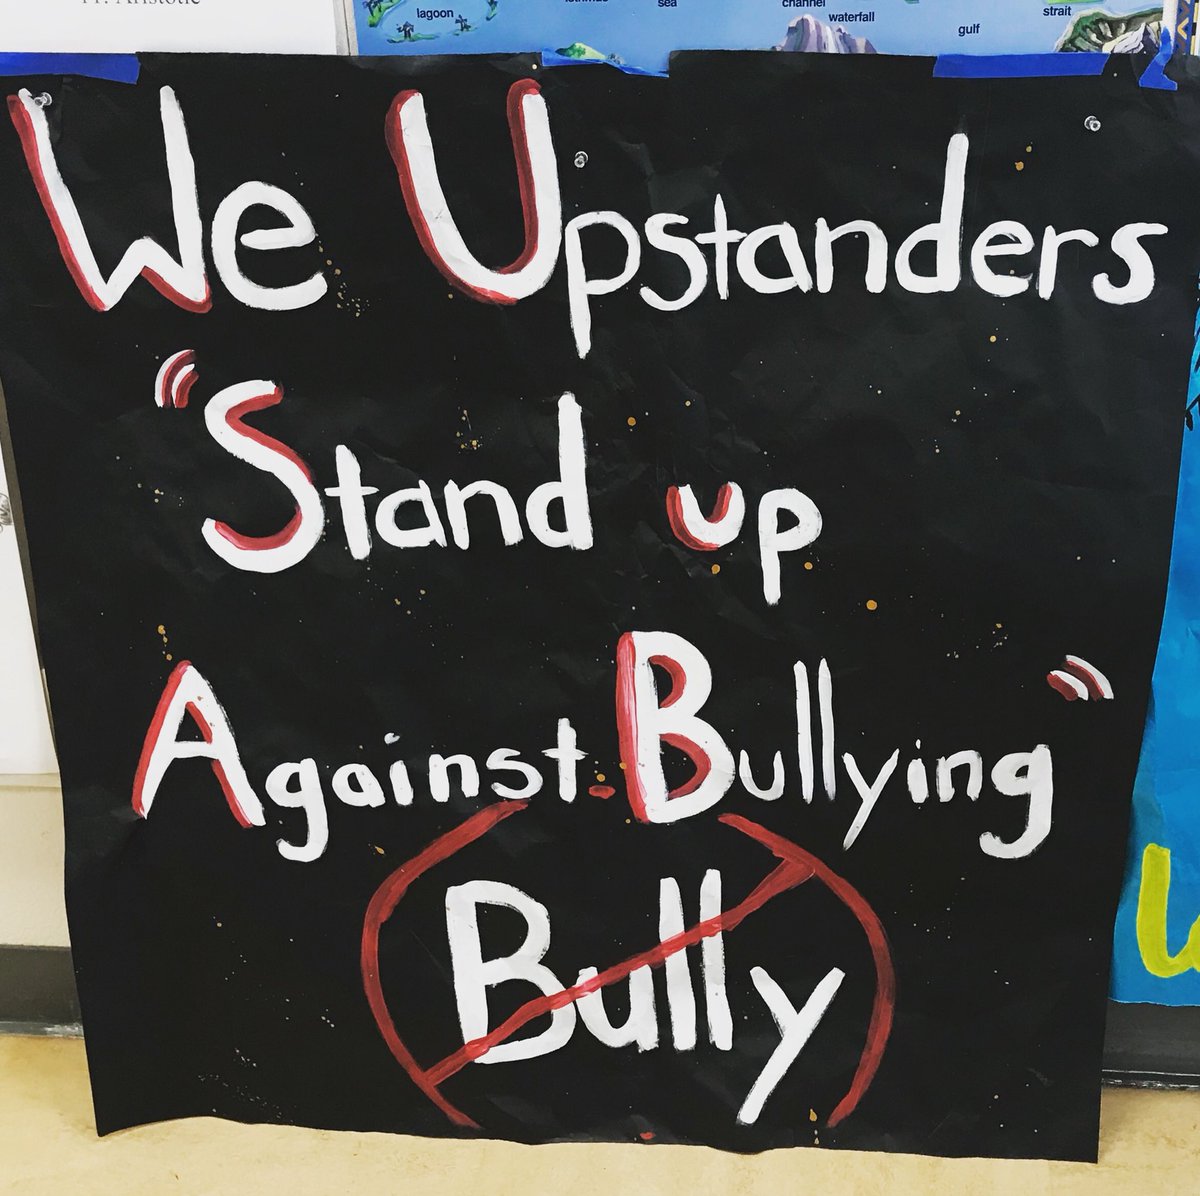 lagoon
sea
channel
waterfall
gulf
strait
We Upstanders
"Stand up
Against Bullying"
Bully